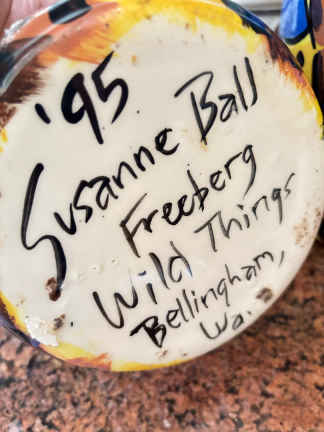 '95
Susanne Ball
Freeberg
Wild Things
Bellingham,
Wa.